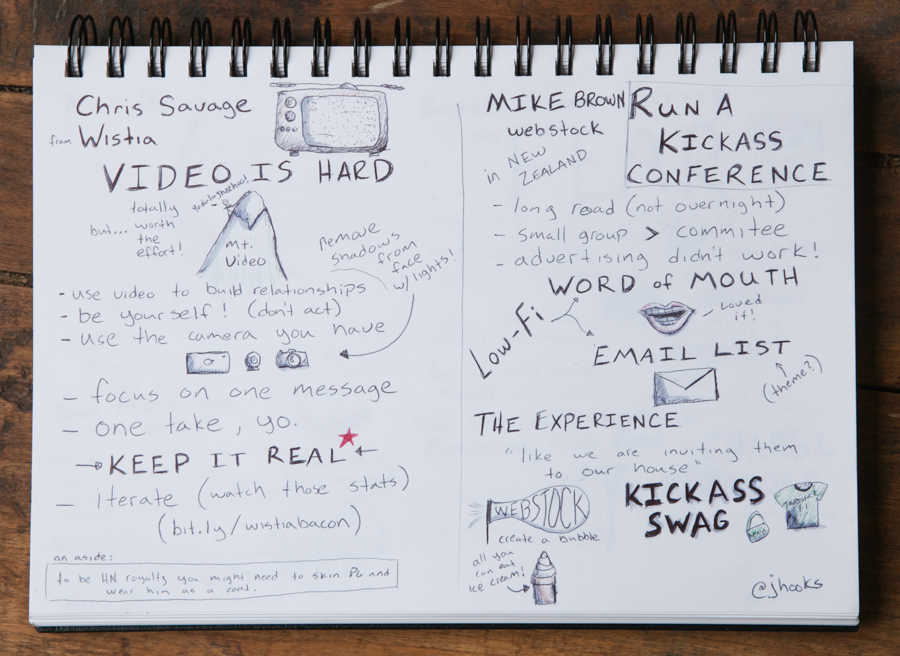 Chris Savage
from Wistia
VIDEO IS HARD
totally
but... worth
the
effort!
Mt.
Video
remove
shadows
from
face
w/ lights!
- use video to build relationships
- be yourself! (don't act)
- use the camera you have
- focus on one message
- one take, yo.
KEEP IT REAL
- Iterate (watch those stats)
(bit.ly/wistiabacon)
an aside:
to be HN royalty you might need to skin PG and
wear him as a coat.
MIKE BROWN
webstock
in NEW
ZEALAND
RUN A
KICKASS
CONFERENCE
- long road (not overnight)
- small group > commitee
- advertising didn't work!
WORD of MOUTH
Loved
it!
Low-Fi
EMAIL LIST
(theme?)
THE EXPERIENCE
"like we are inviting them
to our house"
WEBSTOCK
create a bubble
KICKASS
SWAG
all you
can eat
ICE cream!
@jhooks